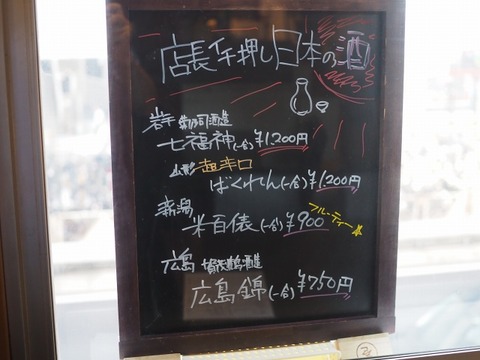 店長イチ押し日本の酒
岩手 菊の司酒造
七福神(一合)¥1,200円
山形 超辛口
ばくれん(一合)¥1,200円
新潟 フルーティー
米百俵(一合)¥900
広島 賀茂鶴酒造
広島錦(一合)¥750円